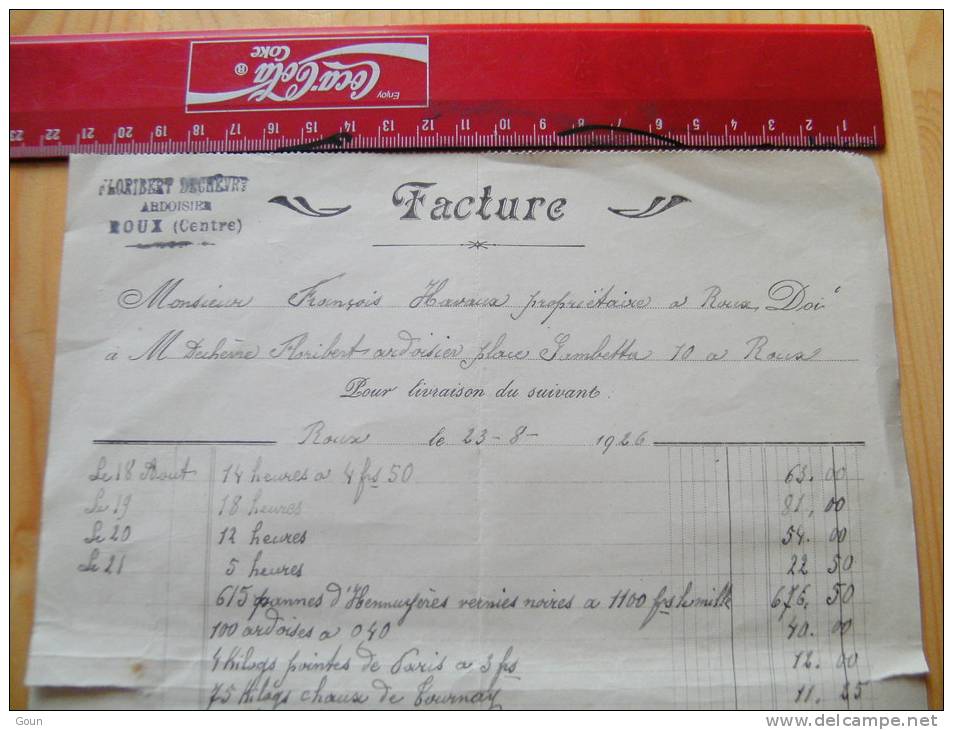 Enjoy
Coca-Cola ®
COKE
23 22 21 20 19 18 17 16 15 14 13 12 11 10 9 8 7 6 5 4 3 2 1
FLORIBERT DECHÈVRE
ARDOISIER
ROUX (Centre)
Facture
Monsieur François Havaux propriétaire a Roux, Doit
à M Dechèvre Floribert ardoisier place Gambetta 10 a Roux
Pour livraison du suivant :
Roux le 23-8- 1926
Le 18 Aout 14 heures a 4 frs 50 63.00
Le 19 18 heures 81,00
Le 20 12 heures 54.00
Le 21 5 heures 22 50
615 pannes d'Hennuyères vernies noires a 1100 frs le mille 676,50
100 ardoises a 0 40 40.00
4 kilogs pointes de Paris a 3 frs 12.00
75 kilogs chaux de Tournay 11.25
Goun
www.delcampe.net